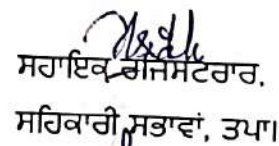 ਸਹਾਇਕ ਰਜਿਸਟਰਾਰ.
ਸਹਿਕਾਰੀ ਸਭਾਵਾਂ, ਤਪਾ।